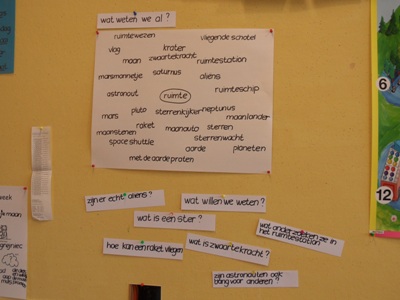 wat weten we al?
ruimtewezen
vliegende schotel
vlag
krater
maan
zwaartekracht
ruimtestation
marsmannetje
saturnus
aliens
astronaut
ruimte
ruimteschip
mars
pluto
sterrenkijker
neptunus
maanlander
maanstenen
raket
maanauto
sterren
space shuttle
sterrenwacht
aarde
planeten
met de aarde praten
zijn er echt aliens?
wat willen we weten?
wat is een ster?
wat onderzoeken ze in
het ruimtestation?
hoe kan een raket vliegen
wat is zwaartekracht?
zijn astronauten ook
bang voor anderen?
6
12
week
maan